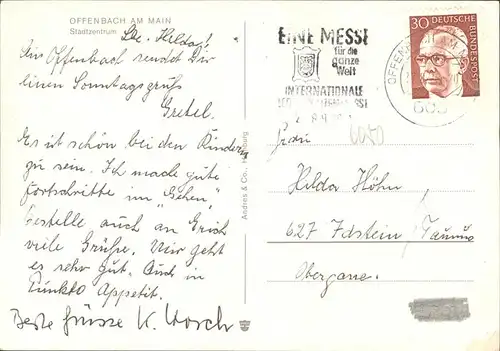 OFFENBACH AM MAIN
Stadtzentrum
Lbe. Hilda!
Aus Offenbach sendet Dir
einen Sonntagsgruß
Gretel.
Es ist schön bei den Kindern
zu sein. Ich mach gute
Fortschritte im „Gehen“,
bestelle auch an Erich
viele Grüße. Mir geht
es sehr gut. Auch in
Punkto Appetit.
Beste Grüsse K. Worch
Andres & Co., Hamburg
EINE MESSE
für die
ganze
Welt
INTERNATIONALE
OFFENBACH AM
30 DEUTSCHE
BUNDESPOST
6050
Frau
Hilda Höhn
627 Idstein/Taunus
Obergasse.